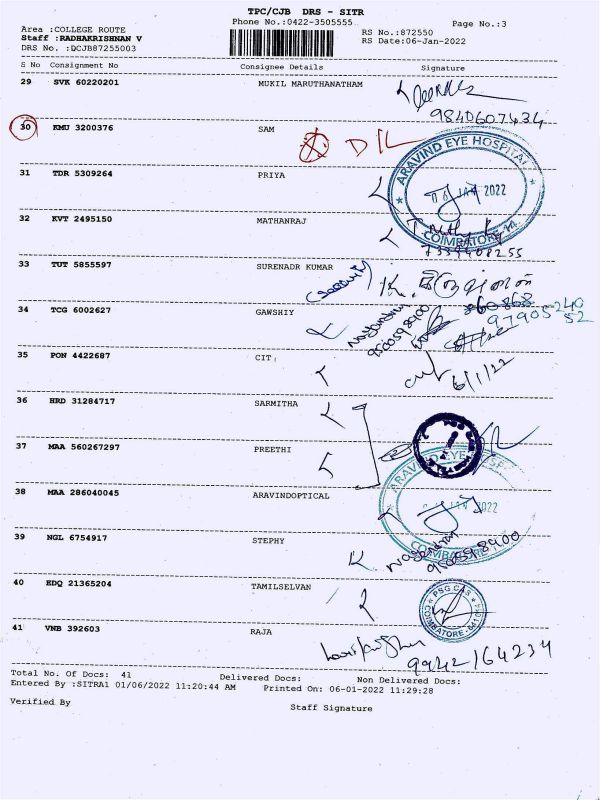 TPC/CJB DRS - SITR
Phone No.:0422-3505555
Page No.:3
Area :COLLEGE ROUTE
Staff :RADHAKRISHNAN V
DRS No. :DCJB87255003
RS No.:872550
RS Date:06-Jan-2022
S No Consignment No Consignee Details Signature
29 SVK 60220201 MUKIL MARUTHANATHAM
9840607434
30 KMU 3200376 SAM D/L
ARAVIND EYE HOSPITAL
31 TDR 5309264 PRIYA
06 JAN 2022
32 KVT 2495150 MATHANRAJ
COIMBATORE
7339908255
33 TUT 5855597 SURENADR KUMAR
34 TCG 6002627 GAWSHIY
Nagendran
9500598900
97905240
52
35 PON 4422687 CIT
6/1/22
36 HRD 31284717 SARMITHA
37 MAA 560267297 PREETHI
ARAVIND EYE HOSP
38 MAA 286040045 ARAVINDOPTICAL
JAN 2022
39 NGL 6754917 STEPHY
COIMBATORE
Nagendran
9500598900
40 EDQ 21365204 TAMILSELVAN
PSG CAS
COIMBATORE - 641 014
41 VNB 392603 RAJA
9942164234
Total No. Of Docs: 41 Delivered Docs: Non Delivered Docs:
Entered By :SITRA1 01/06/2022 11:20:44 AM Printed On: 06-01-2022 11:29:28
Verified By
Staff Signature